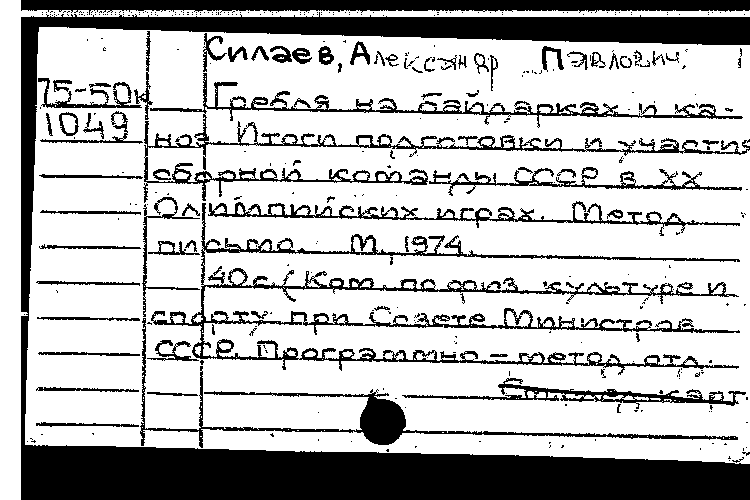 Силаев, Александр Павлович.
75-50к
1049
Гребля на байдарках и ка-
ноэ. Итоги подготовки и участия
сборной команды СССР в XX
Олимпийских играх. Метод.
письмо. М., 1974.
40 с. (Ком. по физ. культуре и
спорту при Совете Министров
СССР. Программно-метод. отд.
См. след. карт.